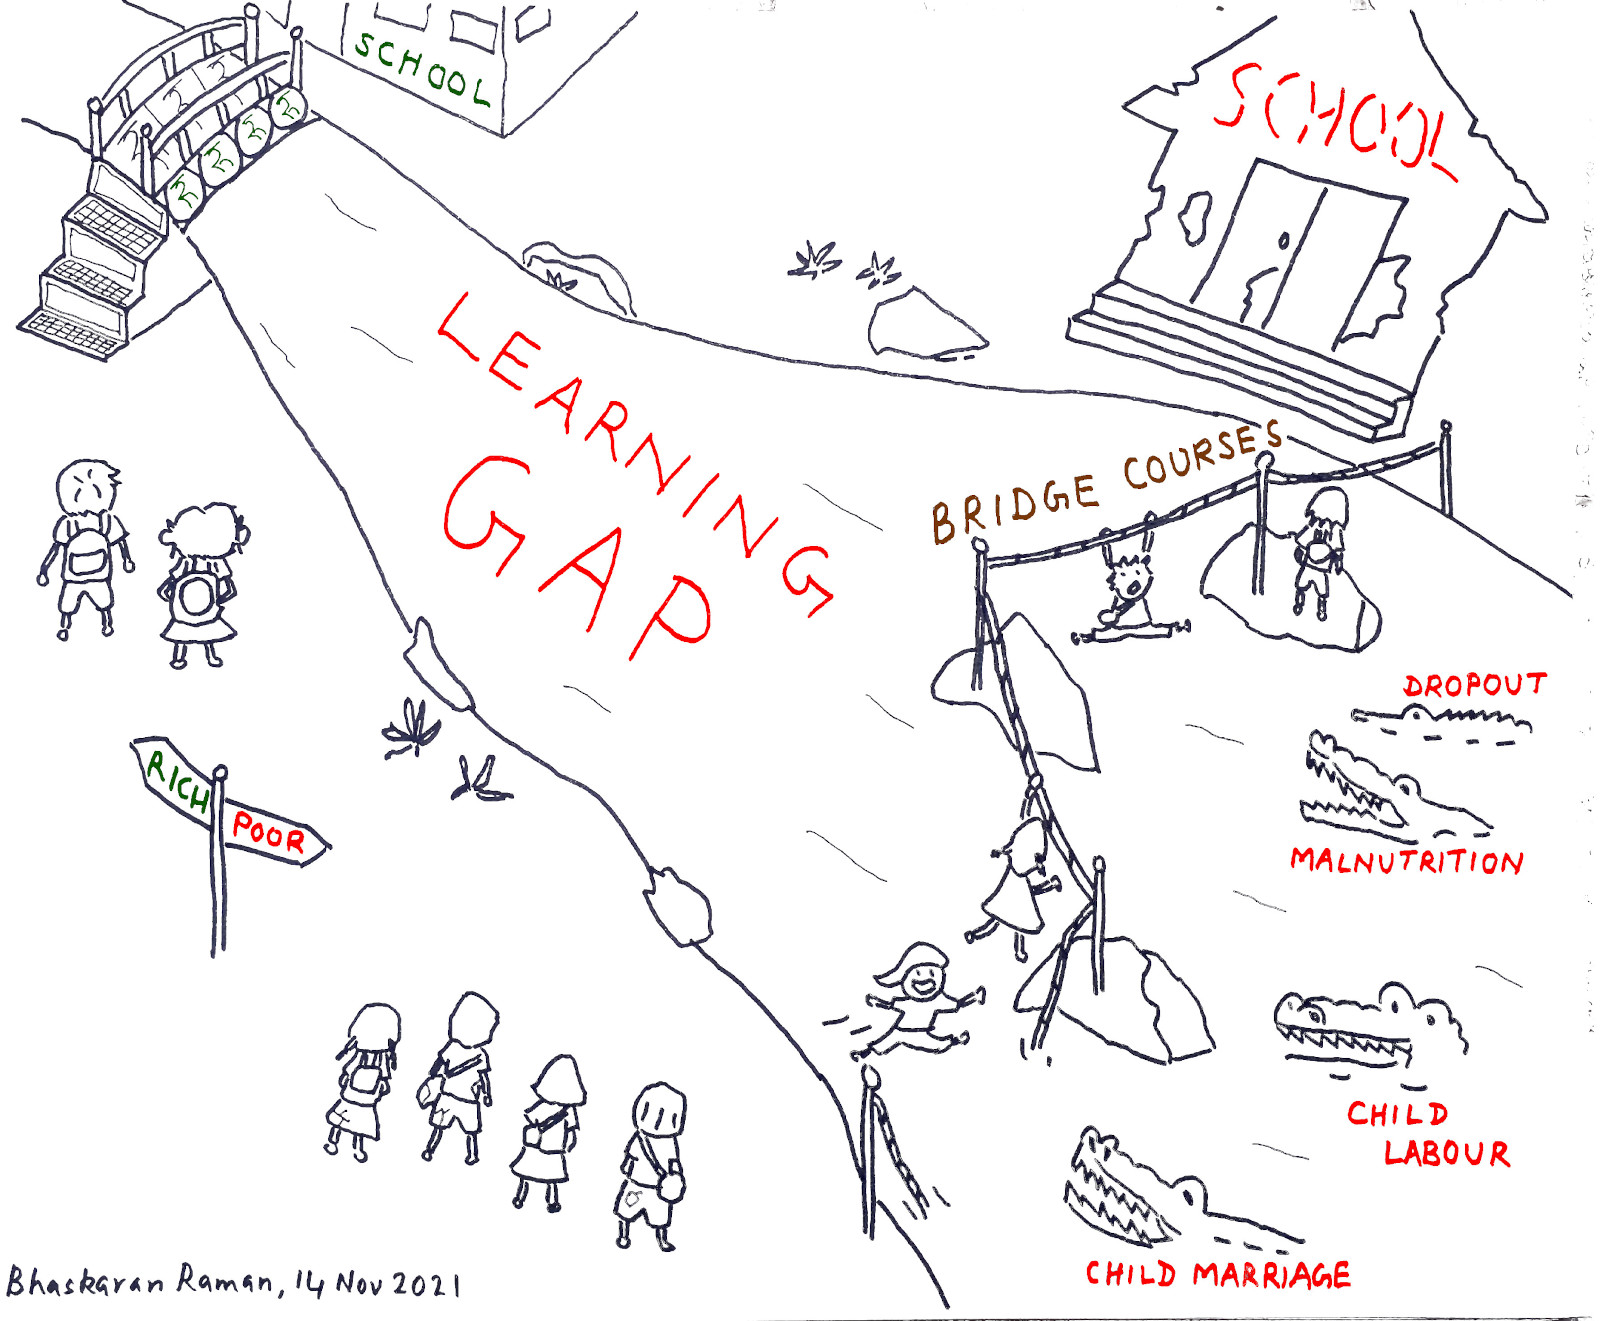 SCHOOL
SCHOOL
LEARNING
GAP
BRIDGE COURSES
DROPOUT
MALNUTRITION
RICH
POOR
CHILD
LABOUR
CHILD MARRIAGE
Bhaskaran Raman, 14 Nov 2021